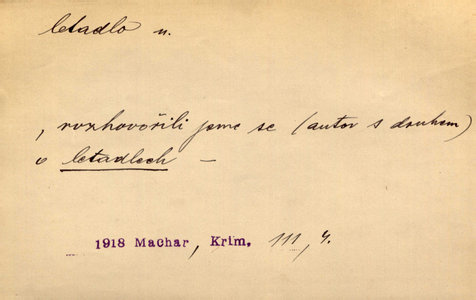 letadlo n.
, rozhovořili jsme se (autor s druhem)
o letadlech –
1918 Machar, Krim. 111, 4.